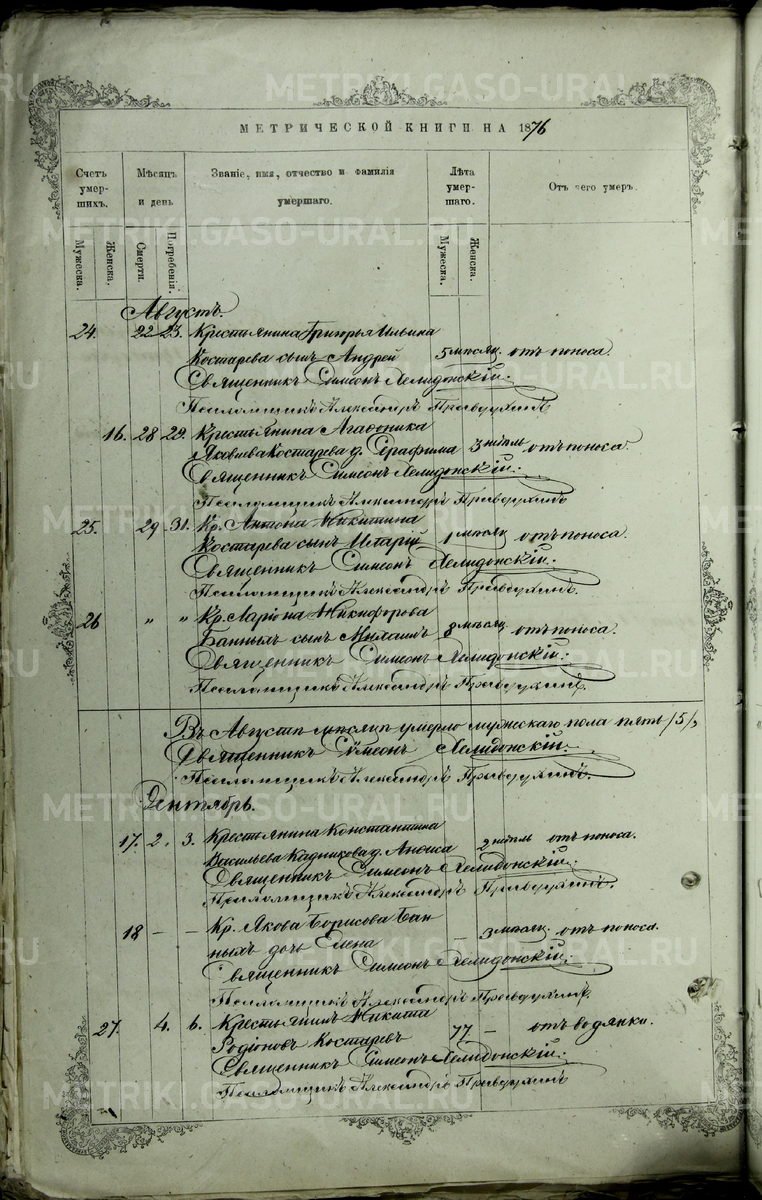 МЕТРИЧЕСКОЙ КНИГИ НА 1876
Счетъ умершихъ.
Мѣсяцъ и день
Званіе, имя, отчество и фамилія умершаго.
Лѣта умершаго.
Отъ чего умеръ.
Мужеска.
Женска.
Смерти.
Погребенія.
Мужеска.
Женска.
Августъ.
24. 22 23. Крестьянина Григорья Ильина
Костарева сынъ Андрей 5 мѣсяц. отъ поноса.
Священникъ Симеонъ Хелидонскій.
Псаломщикъ Александръ Правдухинъ
16. 28 29. Крестьянина Агафоника
Яковлева Костарева д. Серафима 3 недѣль отъ поноса.
Священникъ Симеонъ Хелидонскій.
Псаломщикъ Александръ Правдухинъ
25. 29 31. Кр. Антона Никитина
Костарева сынъ Иларій 1 мѣсяц отъ поноса.
Священникъ Симеонъ Хелидонскій.
Псаломщикъ Александръ Правдухинъ.
26 " " Кр. Ларіона Никифорова
Банныхъ сынъ Михаилъ 3 мѣсяц отъ поноса.
Священникъ Симеонъ Хелидонскій.
Псаломщикъ Александръ Правдухинъ.
Въ Августѣ мѣсяцѣ умерло мужескаго пола пять /5/,
Священникъ Симеонъ Хелидонскій.
Псаломщикъ Александръ Правдухинъ.
Сентябрь.
17. 2. 3. Крестьянина Константина
Васильева Кадникова д. Аниса 2 недѣль отъ поноса.
Священникъ Симеонъ Хелидонскій.
Псаломщикъ Александръ Правдухинъ.
18 - - Кр. Якова Борисова Бан
ныхъ дочь Елена - 3 мѣсяц. отъ поноса.
Священникъ Симеонъ Хелидонскій.
Псаломщикъ Александръ Правдухинъ.
27. 4. 6. Крестьянинъ Никита
Родіоновъ Костаревъ 77 - отъ водянки.
Священникъ Симеонъ Хелидонскій.
Псаломщикъ Александръ Правдухинъ
METRIKI.GASO-URAL.RU